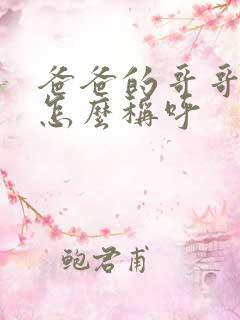 爸爸的哥哥
怎麼稱呼
鲍君甫